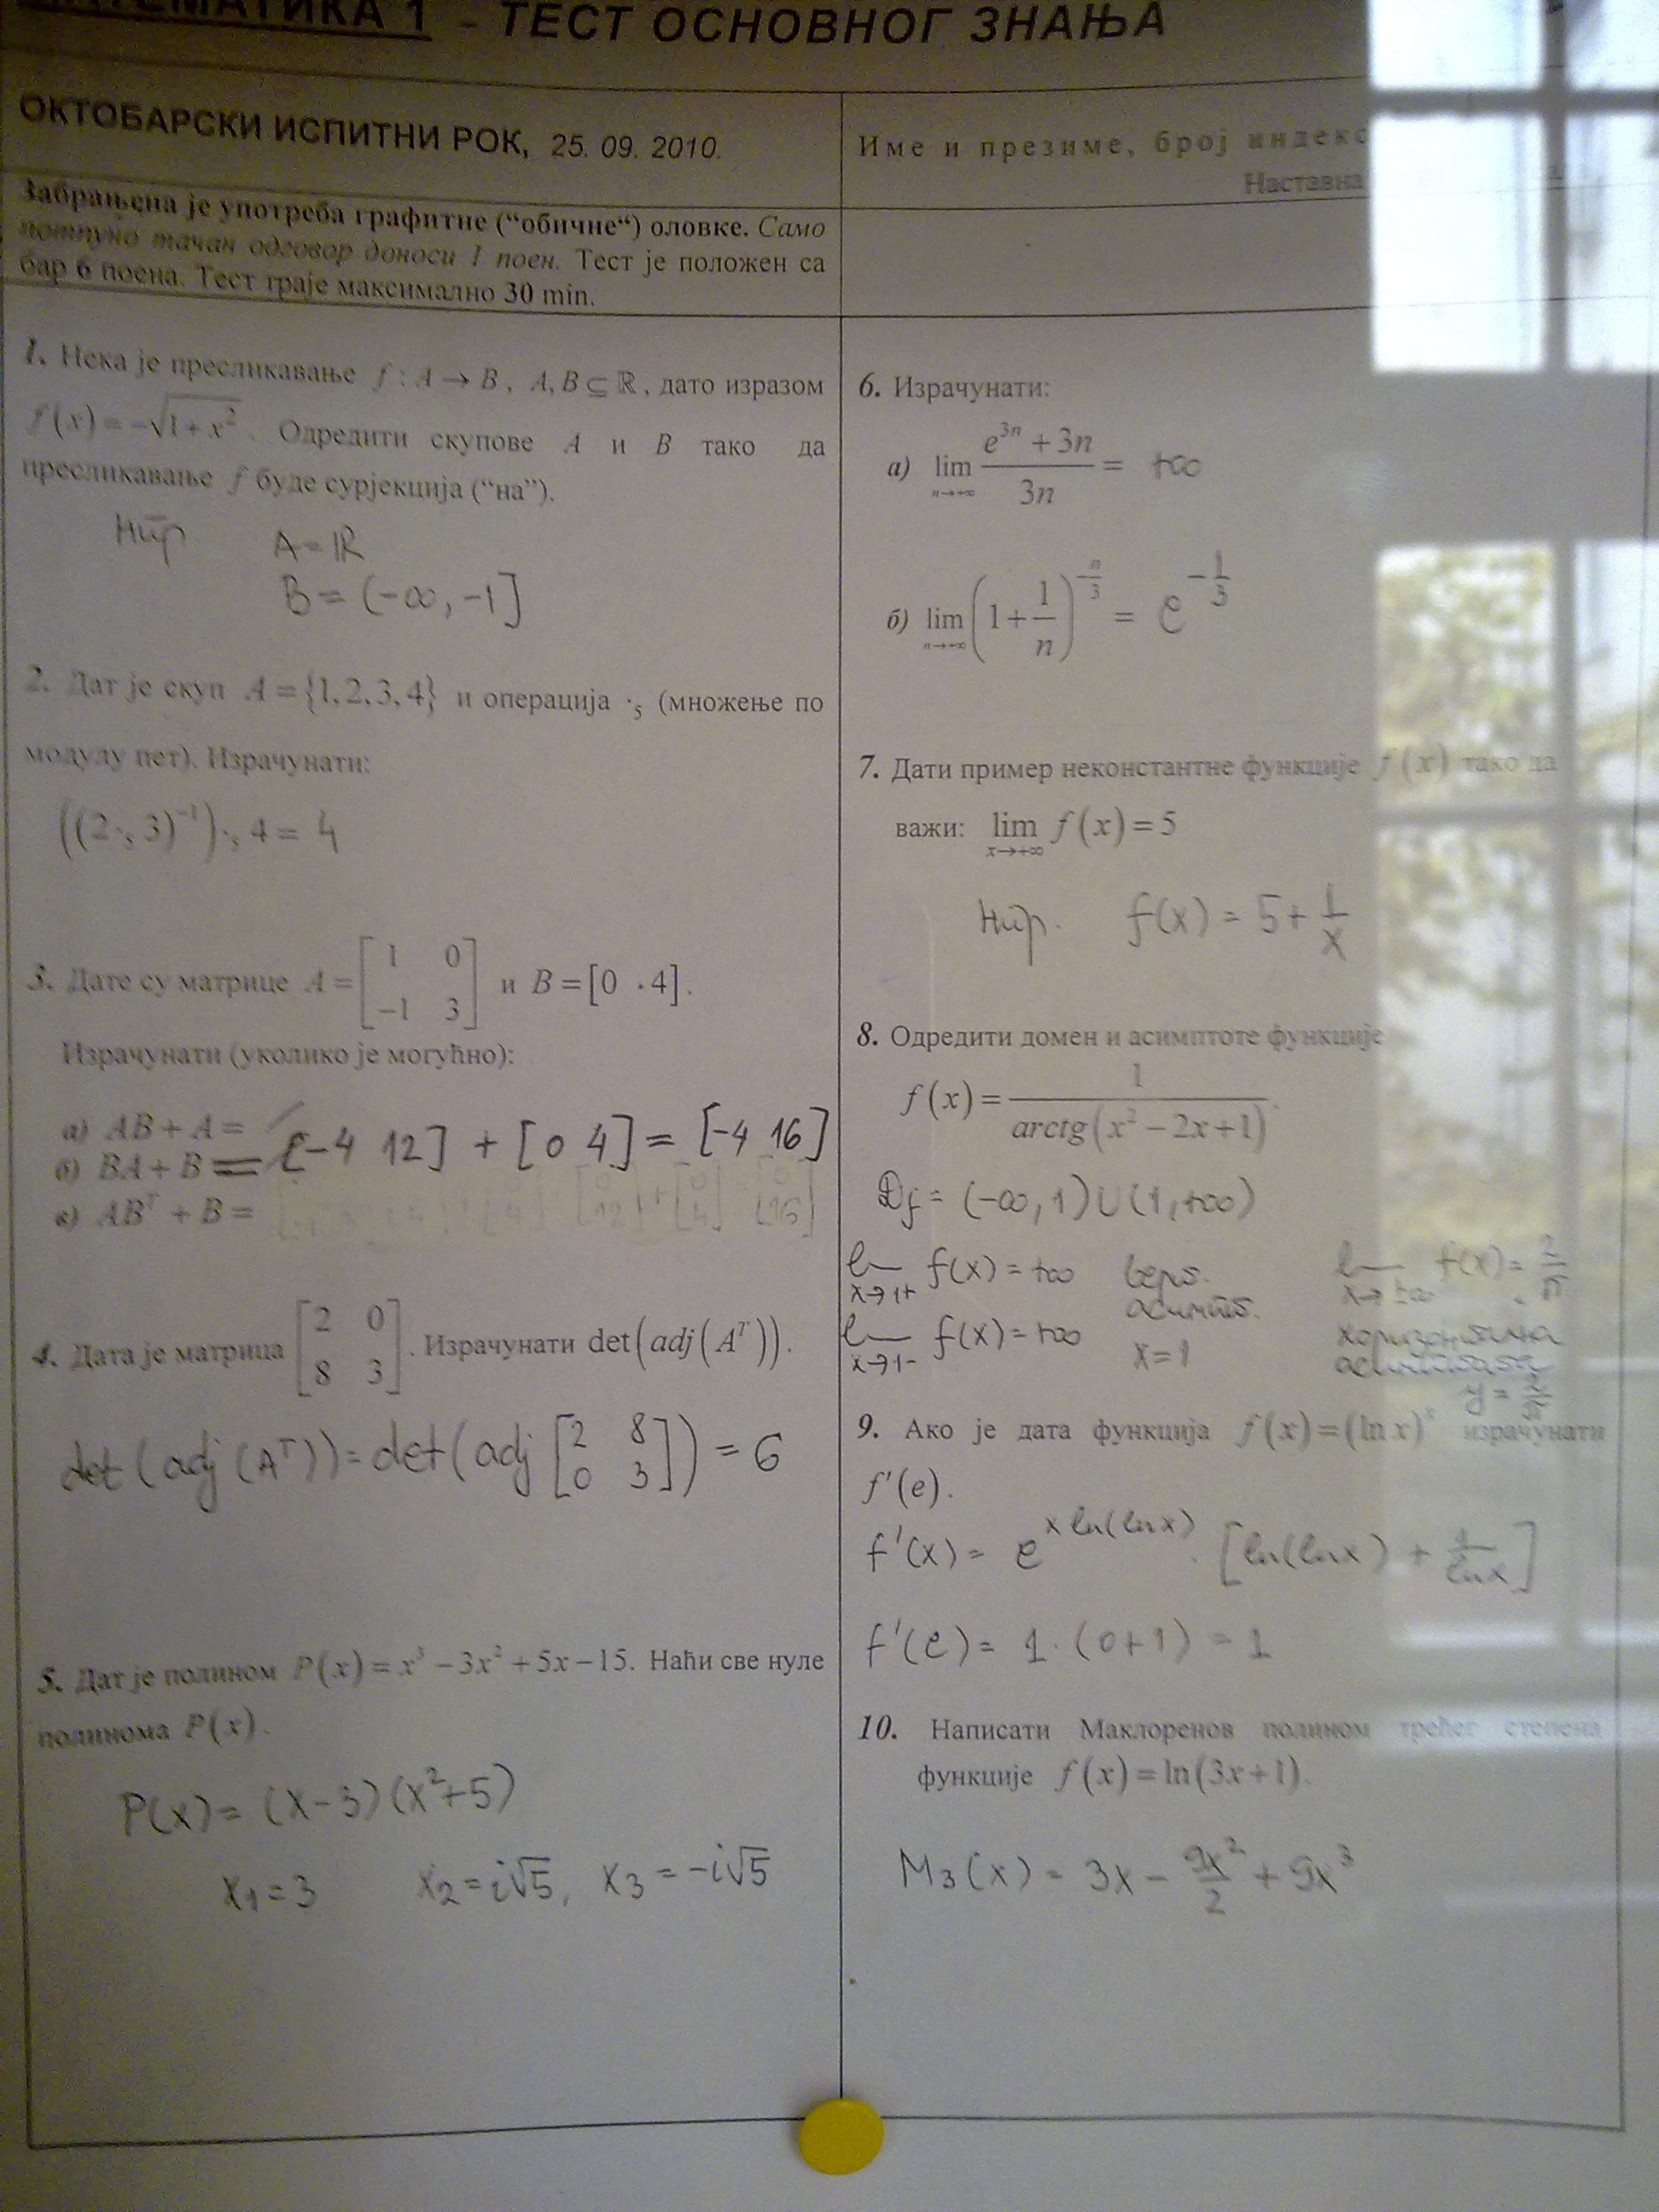 МАТЕМАТИКА 1 - ТЕСТ ОСНОВНОГ ЗНАЊА
ОКТОБАРСКИ ИСПИТНИ РОК, 25. 09. 2010.
Име и презиме, број индекс
Наставна
Забрањена је употреба графитне (“обичне“) оловке. Само
потпуно тачан одговор доноси 1 поен. Тест је положен са
бар 6 поена. Тест траје максимално 30 min.
1. Нека је пресликавање f : A → B , A, B ⊆ ℝ , дато изразом
f(x) = −√(1+x²) . Одредити скупове A и B тако да
пресликавање f буде сурјекција (“на”).
Нпр A = ℝ
B = (-∞, -1]
2. Дат је скуп A = {1, 2, 3, 4} и операција ·₅ (множење по
модулу пет). Израчунати:
((2 ·₅ 3)⁻¹) ·₅ 4 = 4
3. Дате су матрице A = [1 0; −1 3] и B = [0 4].
Израчунати (уколико је могућно):
а) AB + A = /
б) BA + B = [-4 12] + [0 4] = [-4 16]
в) ABᵀ + B =
4. Дата је матрица [2 0; 8 3]. Израчунати det(adj(Aᵀ)).
det(adj(Aᵀ)) = det(adj [2 8; 0 3]) = 6
5. Дат је полином P(x) = x³ − 3x² + 5x − 15. Наћи све нуле
полинома P(x).
P(x) = (x-3)(x²+5)
x₁ = 3 x₂ = i√5, x₃ = -i√5
6. Израчунати:
а) lim n→+∞ (e³ⁿ + 3n)/(3n) = +∞
б) lim n→+∞ (1 + 1/n)^(−n/3) = e^(-1/3)
7. Дати пример неконстантне функције f(x) тако да
важи: lim x→+∞ f(x) = 5
Нпр. f(x) = 5 + 1/x
8. Одредити домен и асимптоте функције
f(x) = 1/arctg(x² − 2x + 1).
Df = (-∞, 1) ∪ (1, +∞)
lim x→1+ f(x) = +∞ верт. асимпт. x = 1
lim x→1- f(x) = +∞
lim x→±∞ f(x) = 2/π
хоризонтална
асимптота
y = 2/π
9. Ако је дата функција f(x) = (ln x)ˣ израчунати
f′(e).
f'(x) = e^(x ln(lnx)) · [ln(lnx) + 1/lnx]
f'(e) = 1 · (0+1) = 1
10. Написати Маклоренов полином трећег степена
функције f(x) = ln(3x+1).
M₃(x) = 3x - 9x²/2 + 9x³